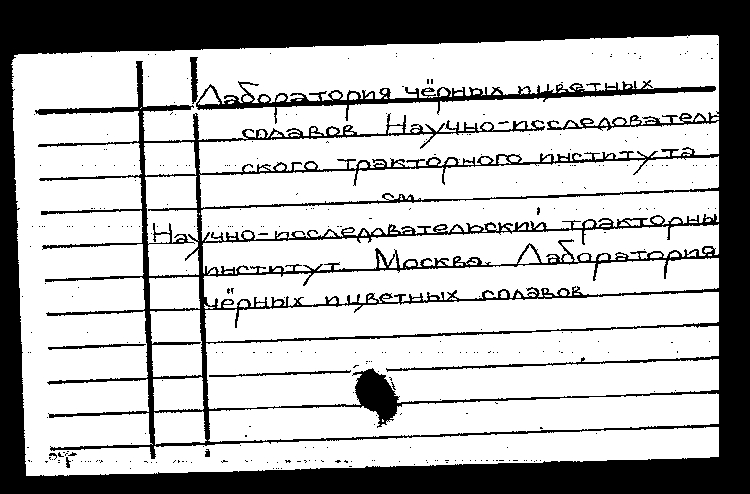 Лаборатория чёрных и цветных
сплавов Научно-исследователь
ского тракторного института
см.
Научно-исследовательский тракторны
институт. Москва. Лаборатория
чёрных и цветных сплавов